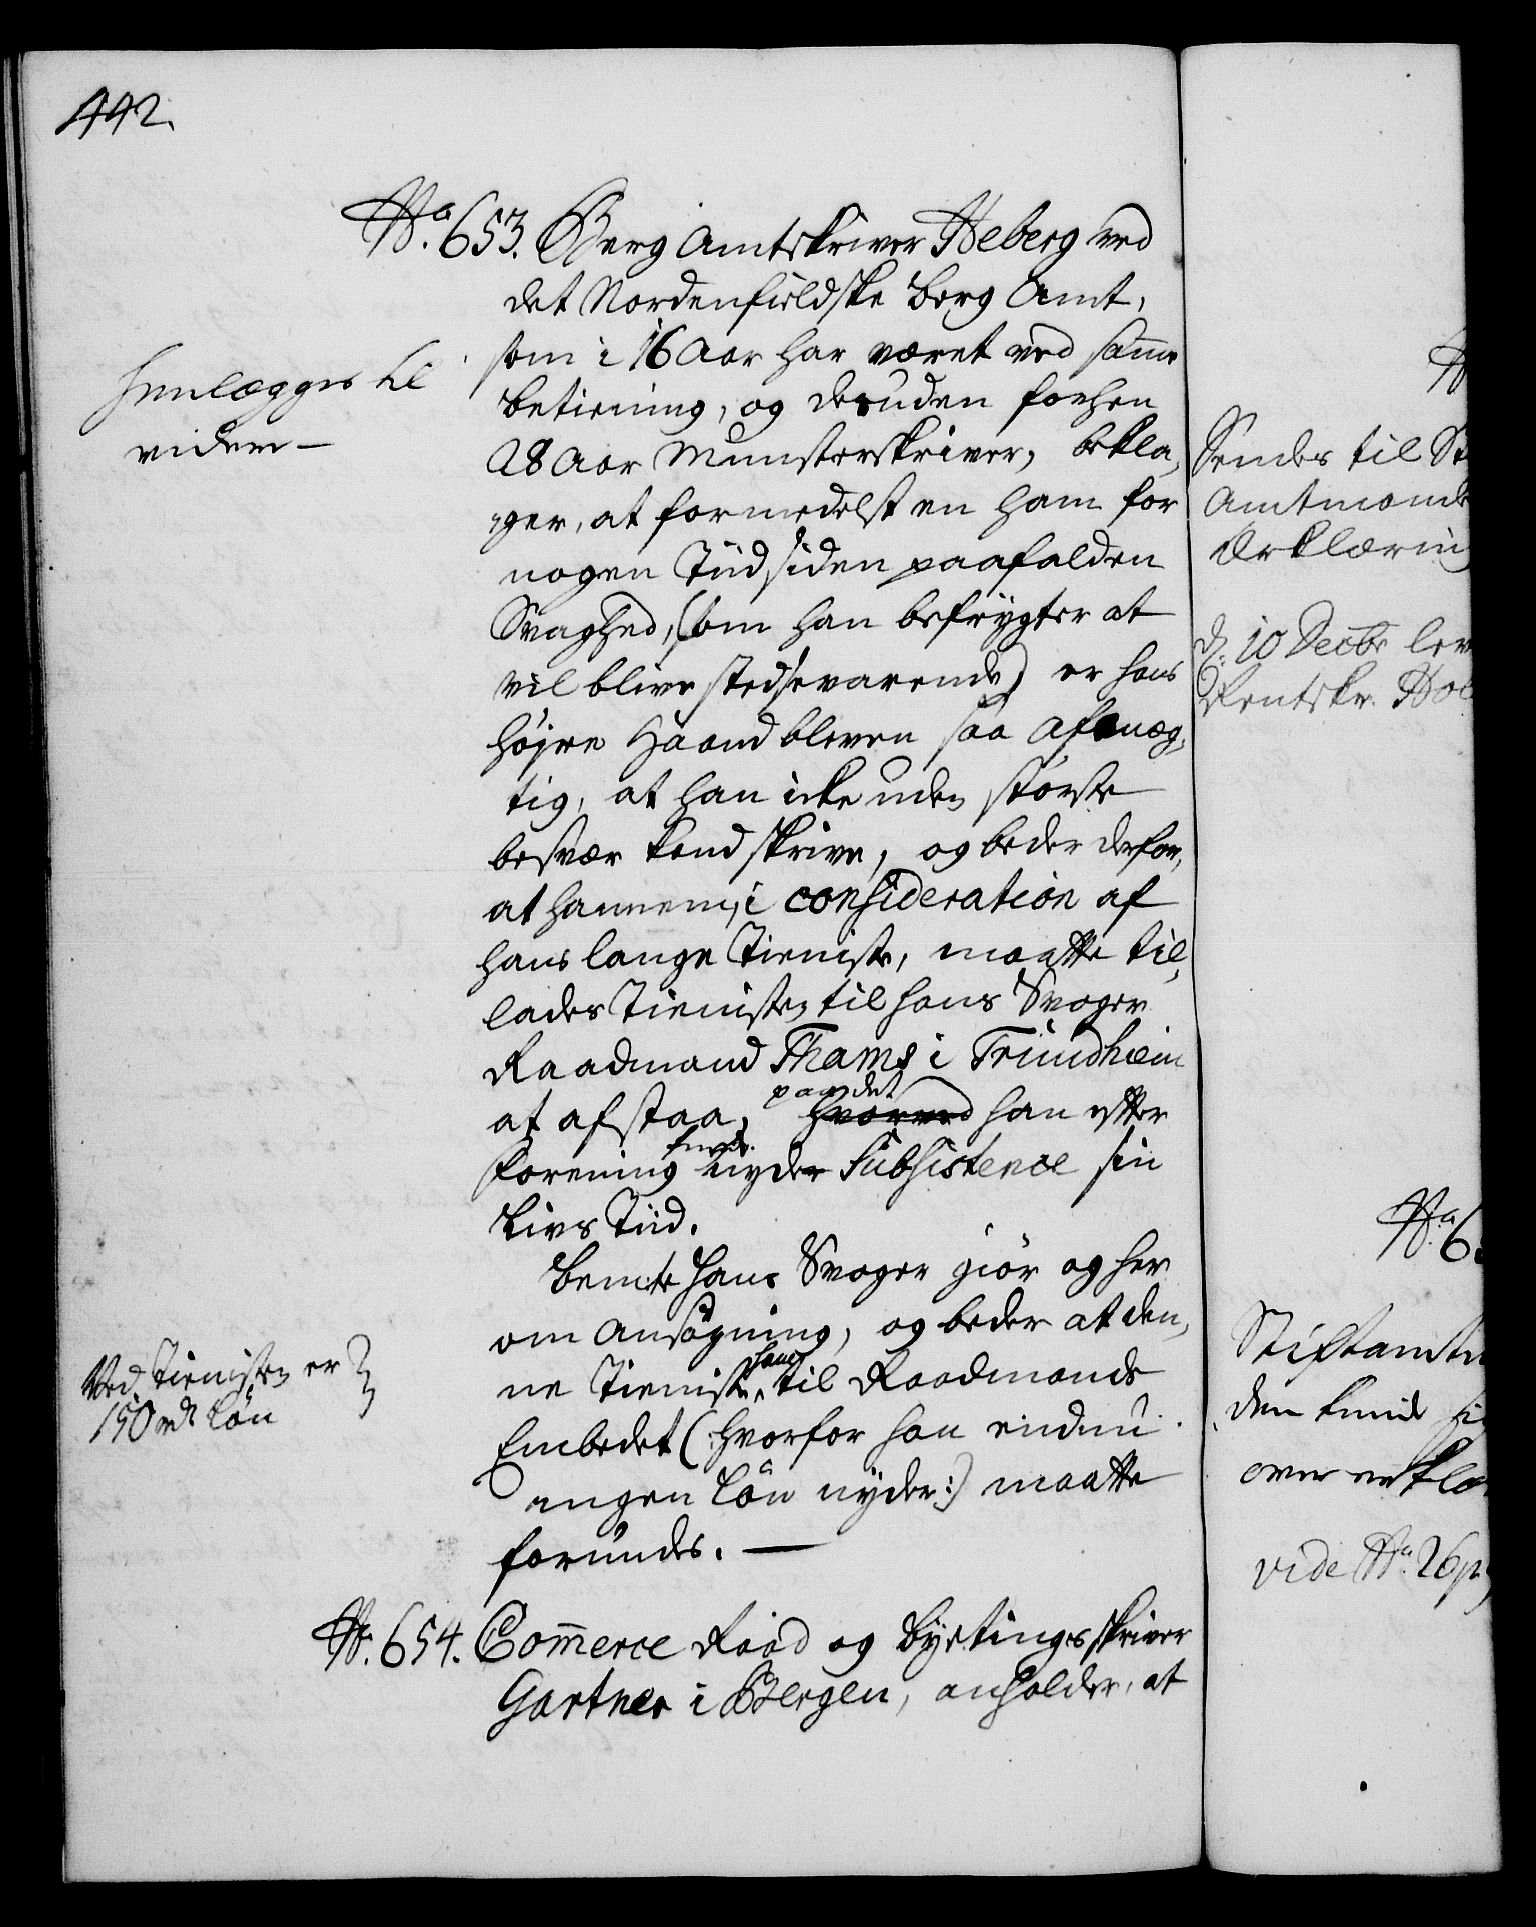 442.
No. 653. Berg Amtskriver Heberg ved
det Nordenfieldske Berg Amt,
som i 16 Aar har været ved samme
betiening, og desuden forhen
28 Aar Munsterskriver, bekla,
ger, at formedelst en ham for
nogen Tiid siden paafalden
Svaghed, (som han befrygter at
vil blive stedsevarende) er hans
høyre Haand bleven saa afmæg,
tig, at han icke uden største
besvær kand skrive, og beder derfor,
at hannem, i consideration af
hans lange Tieniste, maatte til,
lades Tienisten til hans Svoger
Raadmand Thams i Trundhiem
at afstaa, paa det hvorved han efter
Forening kunde nyder Subsistence sin
Livs Tiid.
Bemte hans Svoger giør og her
om Ansøgning, og beder at den,
ne Tieniste, ham til Raadmands
Embedet (: hvorfor han endnu
ingen Løn nyder :) maatte
forundes. —
No. 654. Commerce Raad og Byetingsskriver
Gartner i Bergen, anholder, at
henlægges til
videre —
Ved Tienisten er
150 rdr Løn
Sendes til St
Amtmand
Erklæring
d. 10 Decbr lev
Rentskr. Hol
No. 6
Stiftamtm
den kunde
over erklæ
vide No. 26